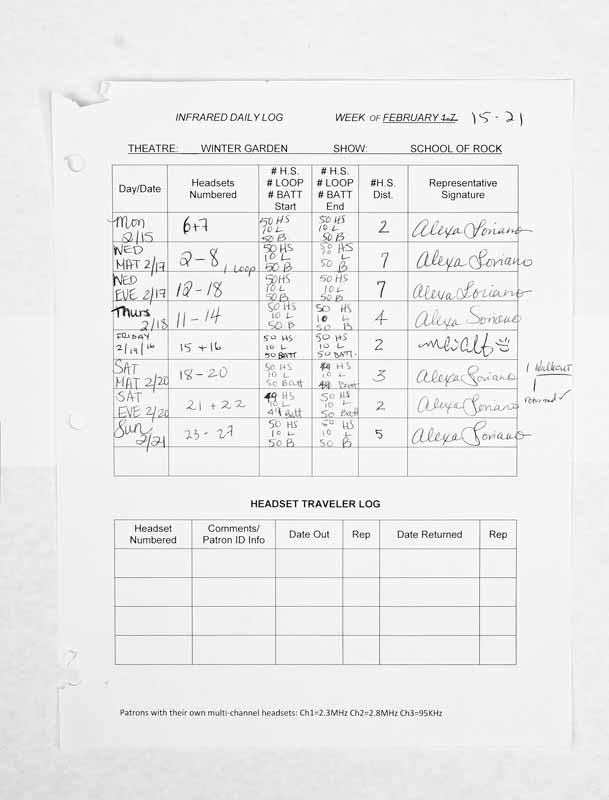 INFRARED DAILY LOG WEEK OF FEBRUARY 1-7 15-21
THEATRE: WINTER GARDEN SHOW: SCHOOL OF ROCK
Day/Date Headsets Numbered # H.S. # LOOP # BATT Start # H.S. # LOOP # BATT End #H.S. Dist. Representative Signature
Mon 2/15 6+7 50 HS 10 L 50 B 50 HS 10 L 50 B 2 Alexa Soriano
WED MAT 2/17 2-8, 1 Loop 50 HS 10 L 50 B 50 HS L 50 B 7 Alexa Soriano
WED EVE 2/17 12-18 50HS 10 L 50 B 50 HS 10 L 50 B 7 Alexa Soriano
Thurs 2/18 11-14 50 HS 10 L 50 B 50 HS 10 L 50 B 4 Alexa Soriano
FRIDAY 2/19/16 15+16 50 HS 10 L 50 BATT 50 HS 10 L 50 BATT. 2
SAT MAT 2/20 18-20 50 HS 10 L 50 Batt 49 HS 10 L 49 Batt 3 Alexa Soriano 1 Walkout returned ✓
SAT EVE 2/20 21+22 49 HS 10 L 49 Batt 50 HS 10 L 50 Batt 2 Alexa Soriano
Sun 2/21 23-27 50 HS 10 L 50 B 50 HS 10 L 50 B 5 Alexa Soriano
HEADSET TRAVELER LOG
Headset Numbered Comments/ Patron ID Info Date Out Rep Date Returned Rep
Patrons with their own multi-channel headsets: Ch1=2.3MHz Ch2=2.8MHz Ch3=95KHz